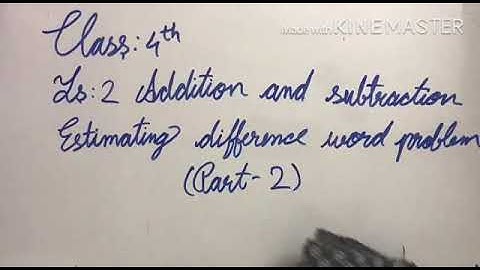 Made with KINEMASTER
Class: 4th
Ls: 2 Addition and subtraction
Estimating difference word problem
(Part-2)